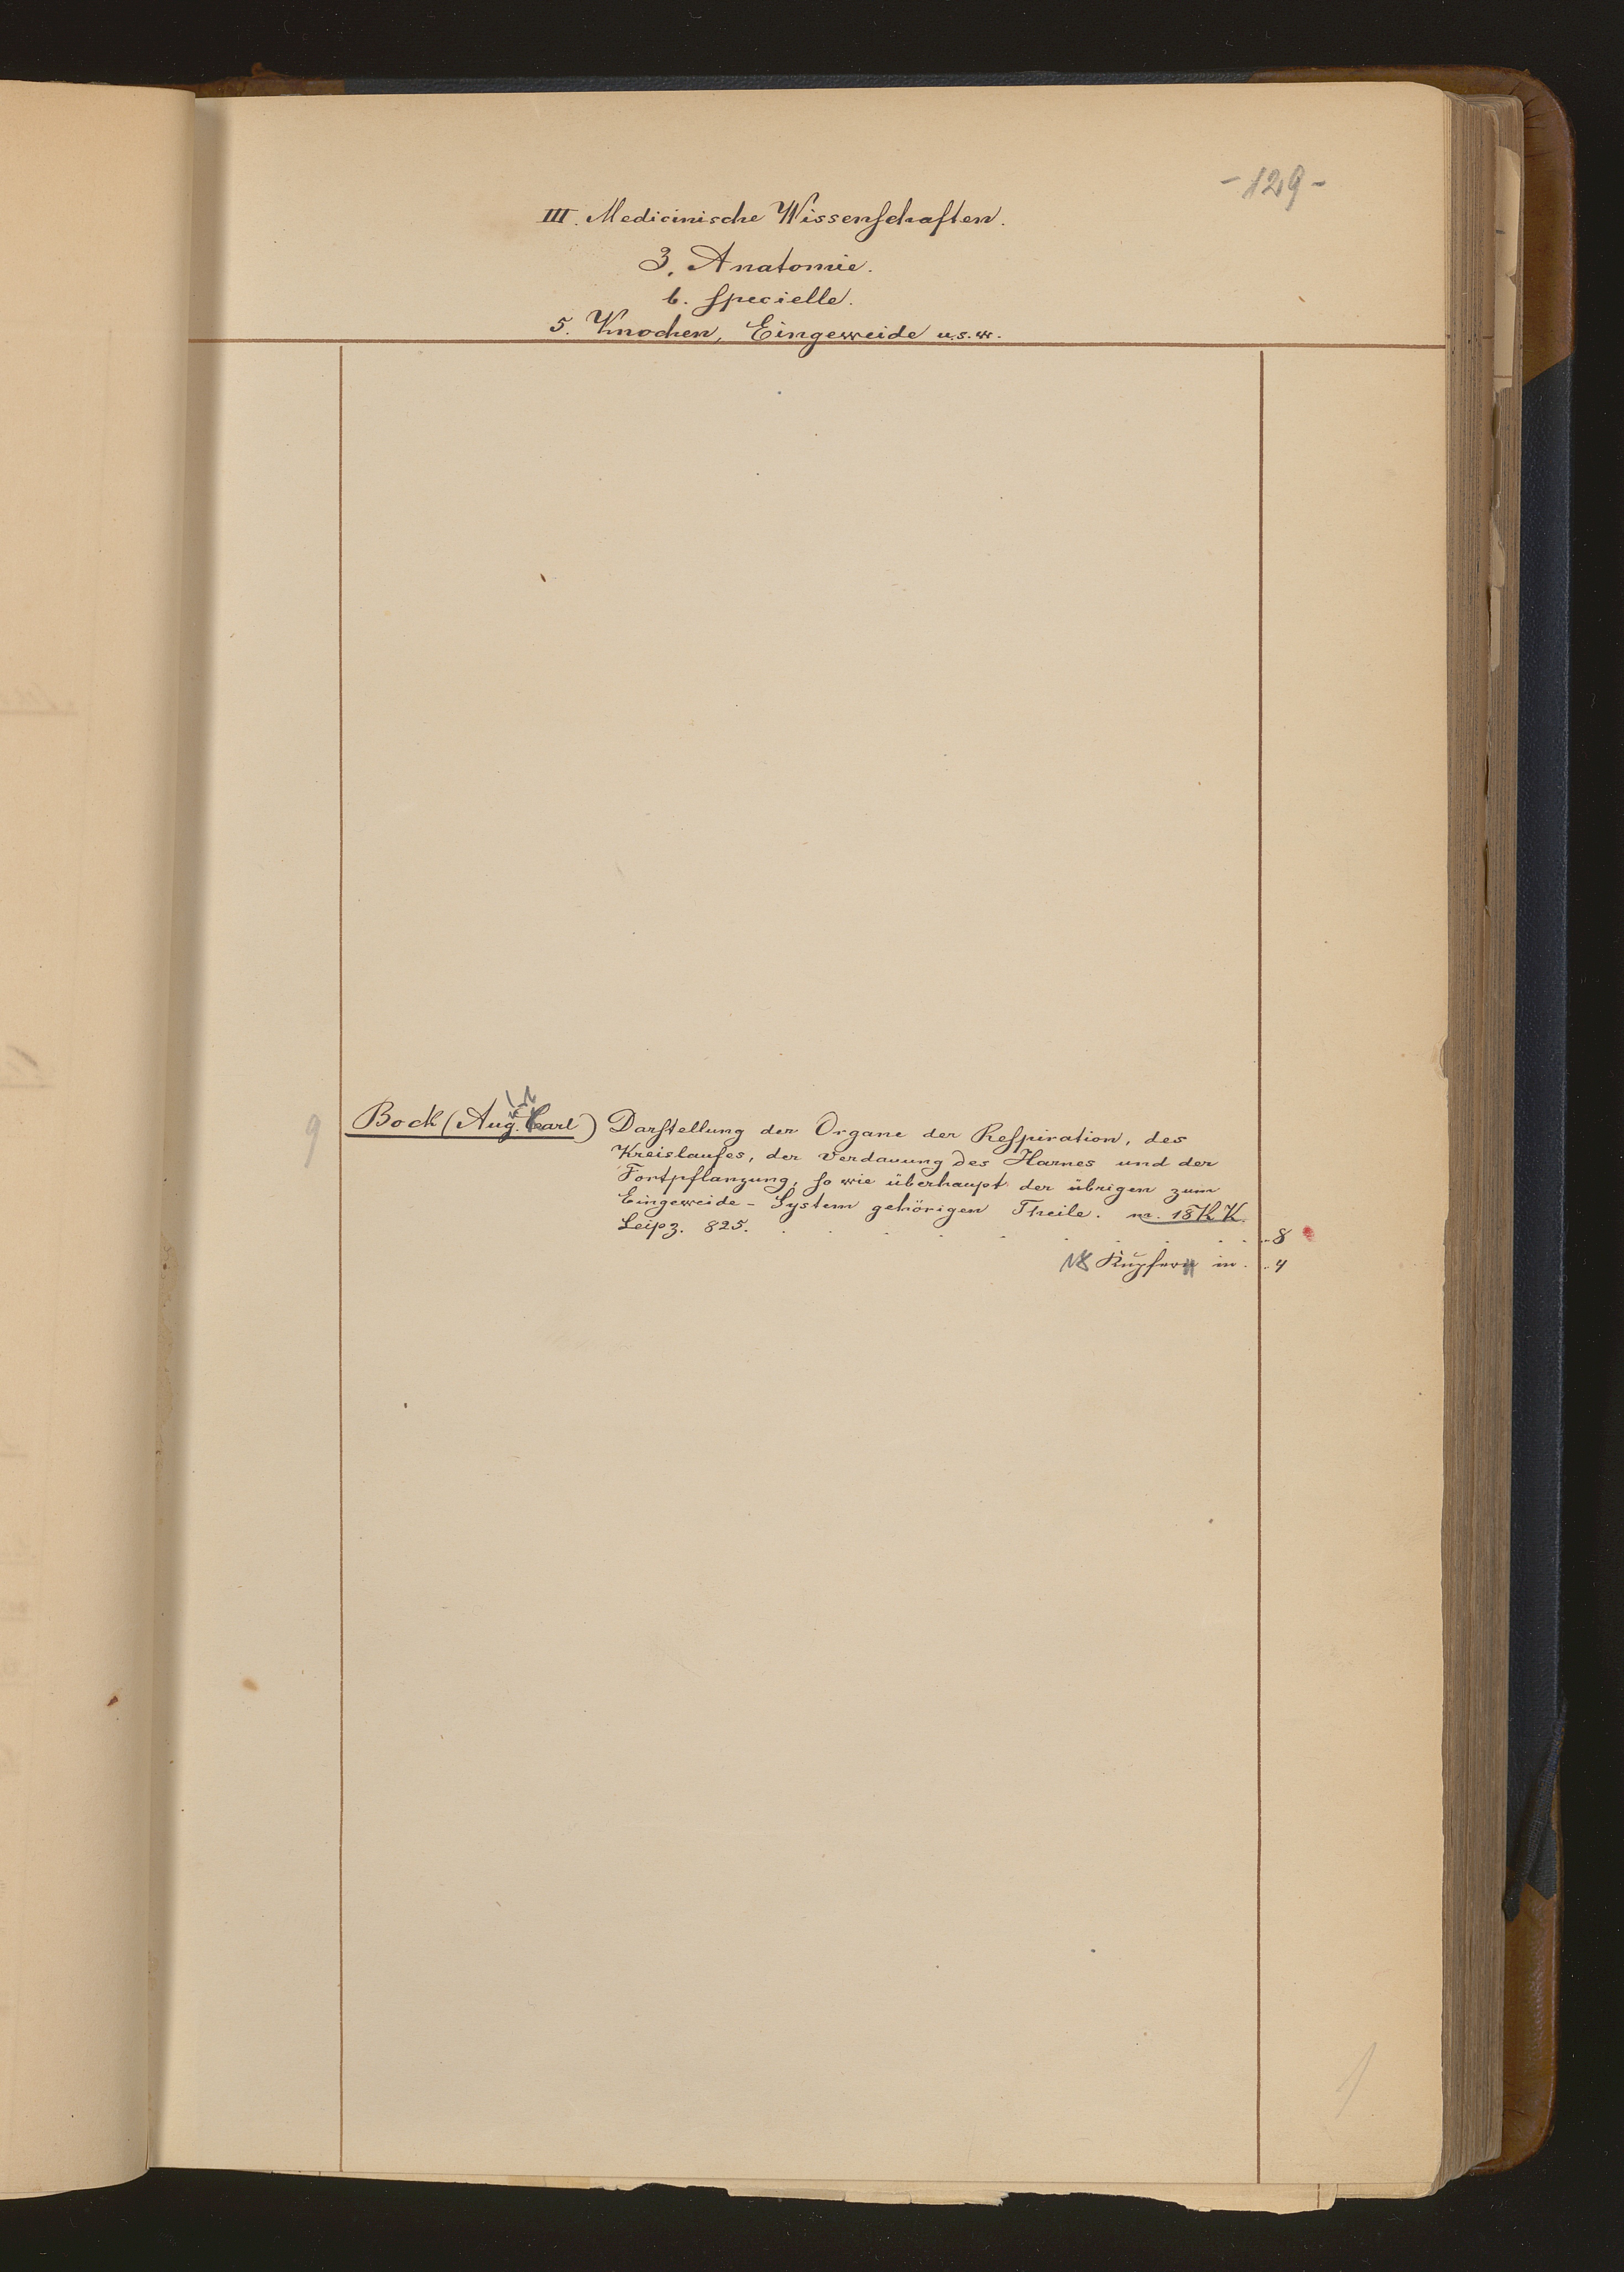 -129-
III. Medicinische Wissenschaften.
3. Anatomie.
b. specielle.
5. Knochen, Eingeweide u.s.w.
9 Bock (Aug. Carl) Darstellung der Organe der Respiration, des
Kreislaufes, der Verdauung des Harnes und der
Fortpflanzung, so wie überhaupt der übrigen zum
Eingeweide-System gehörigen Theile. m. 18 K K.
Leipz. 825. . . . . . . . . . 8
18 Kupfern in . . 4
1